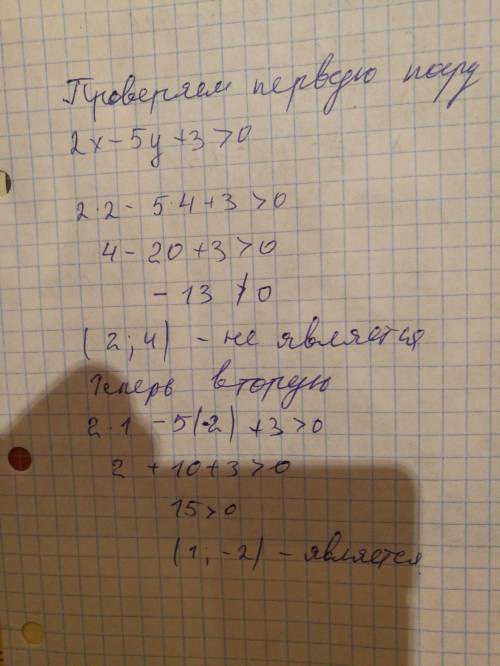 Проверяем первую пару
2x - 5y + 3 > 0
2·2 - 5·4 + 3 > 0
4 - 20 + 3 > 0
- 13 ≯ 0
(2; 4) - не является
Теперь вторую
2·1 - 5(-2) + 3 > 0
2 + 10 + 3 > 0
15 > 0
(1; -2) - является